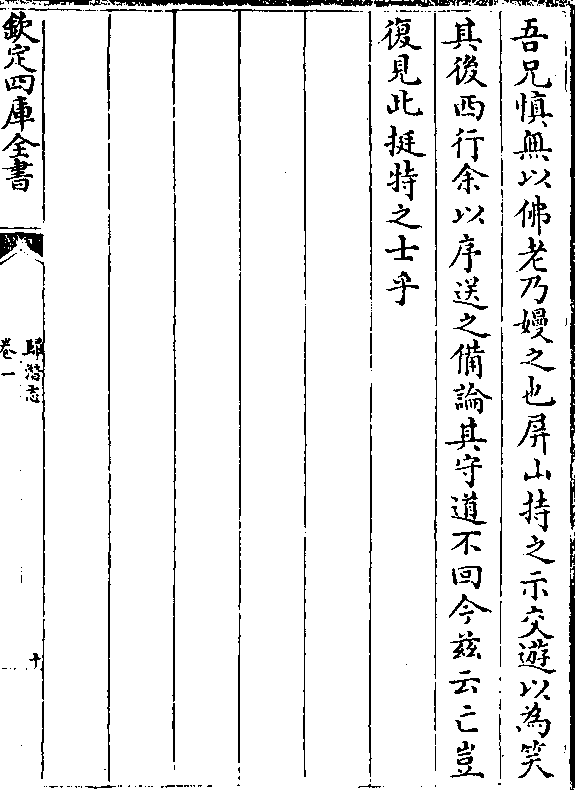 吾兄慎無以佛老乃嫚之也屏山持之示交遊以為笑
其後西行余以序送之備論其守道不回今茲云亡豈
復見此挺特之士乎
欽定四庫全書
歸潛志
卷一
十